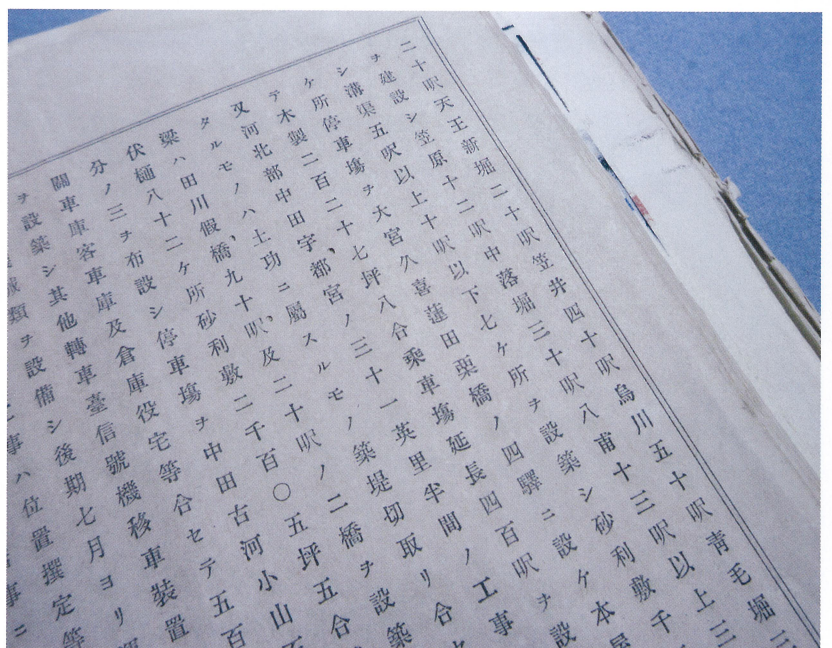 二十呎天王新堀二十呎笠井四十呎烏川五十呎青毛堀三
ヲ建設シ笠原十二呎中落堀三十呎八甫十三呎以上三
シ溝渠五呎以上十呎以下七ケ所ヲ設築シ砂利敷千
ケ所停車塲ヲ大宮久喜蓮田栗橋ノ四驛ニ設ケ本屋
テ木製二百二十七坪八合乘車塲延長四百呎ヲ設
又河北部中田宇都宮ノ三十一英里半間ノ工事
タルモノハ土功ニ屬スルモノ築堤切取リ合
梁ハ田川假橋九十呎、及二十呎ノ二橋ヲ設築
伏樋八十二ケ所砂利敷二千百〇五坪五合
分ノ三ヲ布設シ停車塲ヲ中田古河小山
關車庫客車庫及倉庫役宅等合セテ五百
ヲ設築シ其他轉車臺信號機移車裝置
類ヲ設備シ後期七月ヨリ
事ハ位置撰定等
事ニ